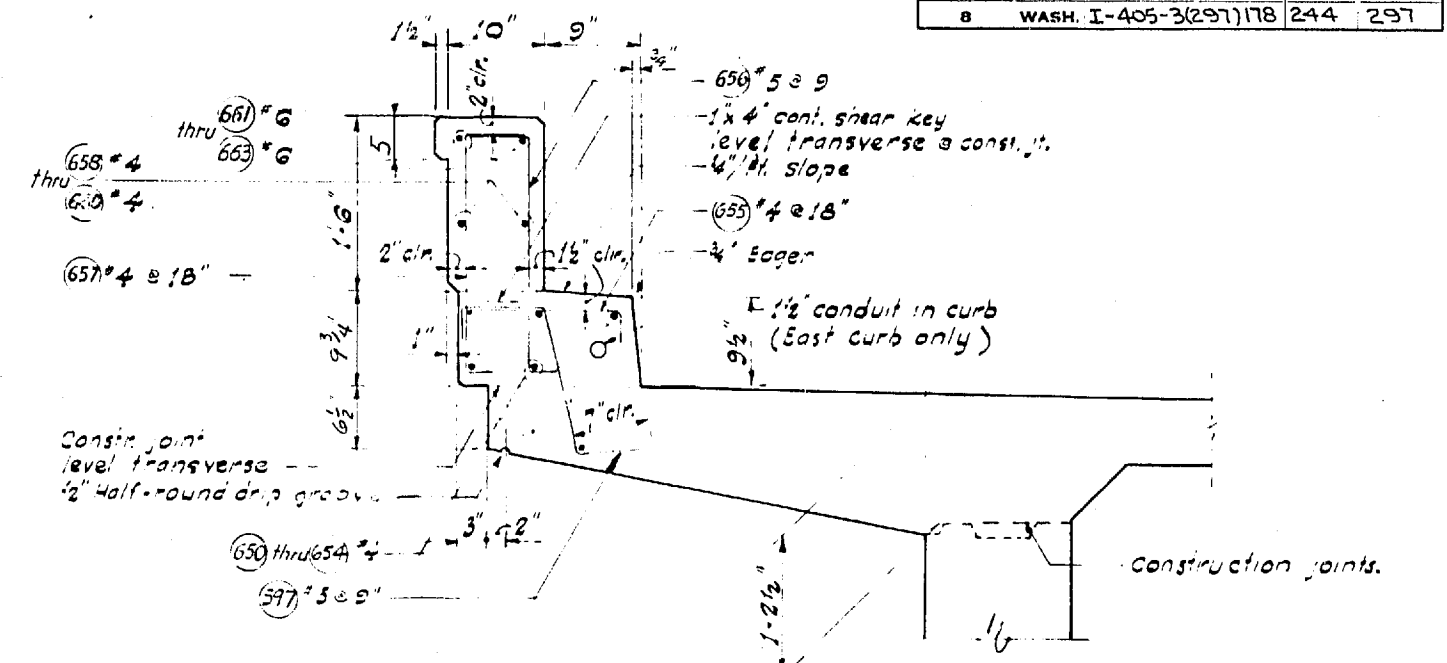 8 WASH. I-405-3(297)178 244 297
1½" 10" 9"
¾"
2" clr.
656 #5 @ 9
1" x 4" cont. shear key
level transverse @ const. jt.
¼"/ft. slope
655 #4 @ 18"
¾" Edger
thru 661 #6
663 #6
5
thru 658 #4
660 #4
1'-6"
657 #4 @ 18"
2" clr.
1½" clr.
1½" conduit in curb
(East curb only)
9½"
1"
9¾"
6½"
1" clr.
Constr. joint
level transverse
½" Half-round drip groove
3" 2"
650 thru 654 #4
597 #5 @ 9"
Construction joints.
1'-2½"